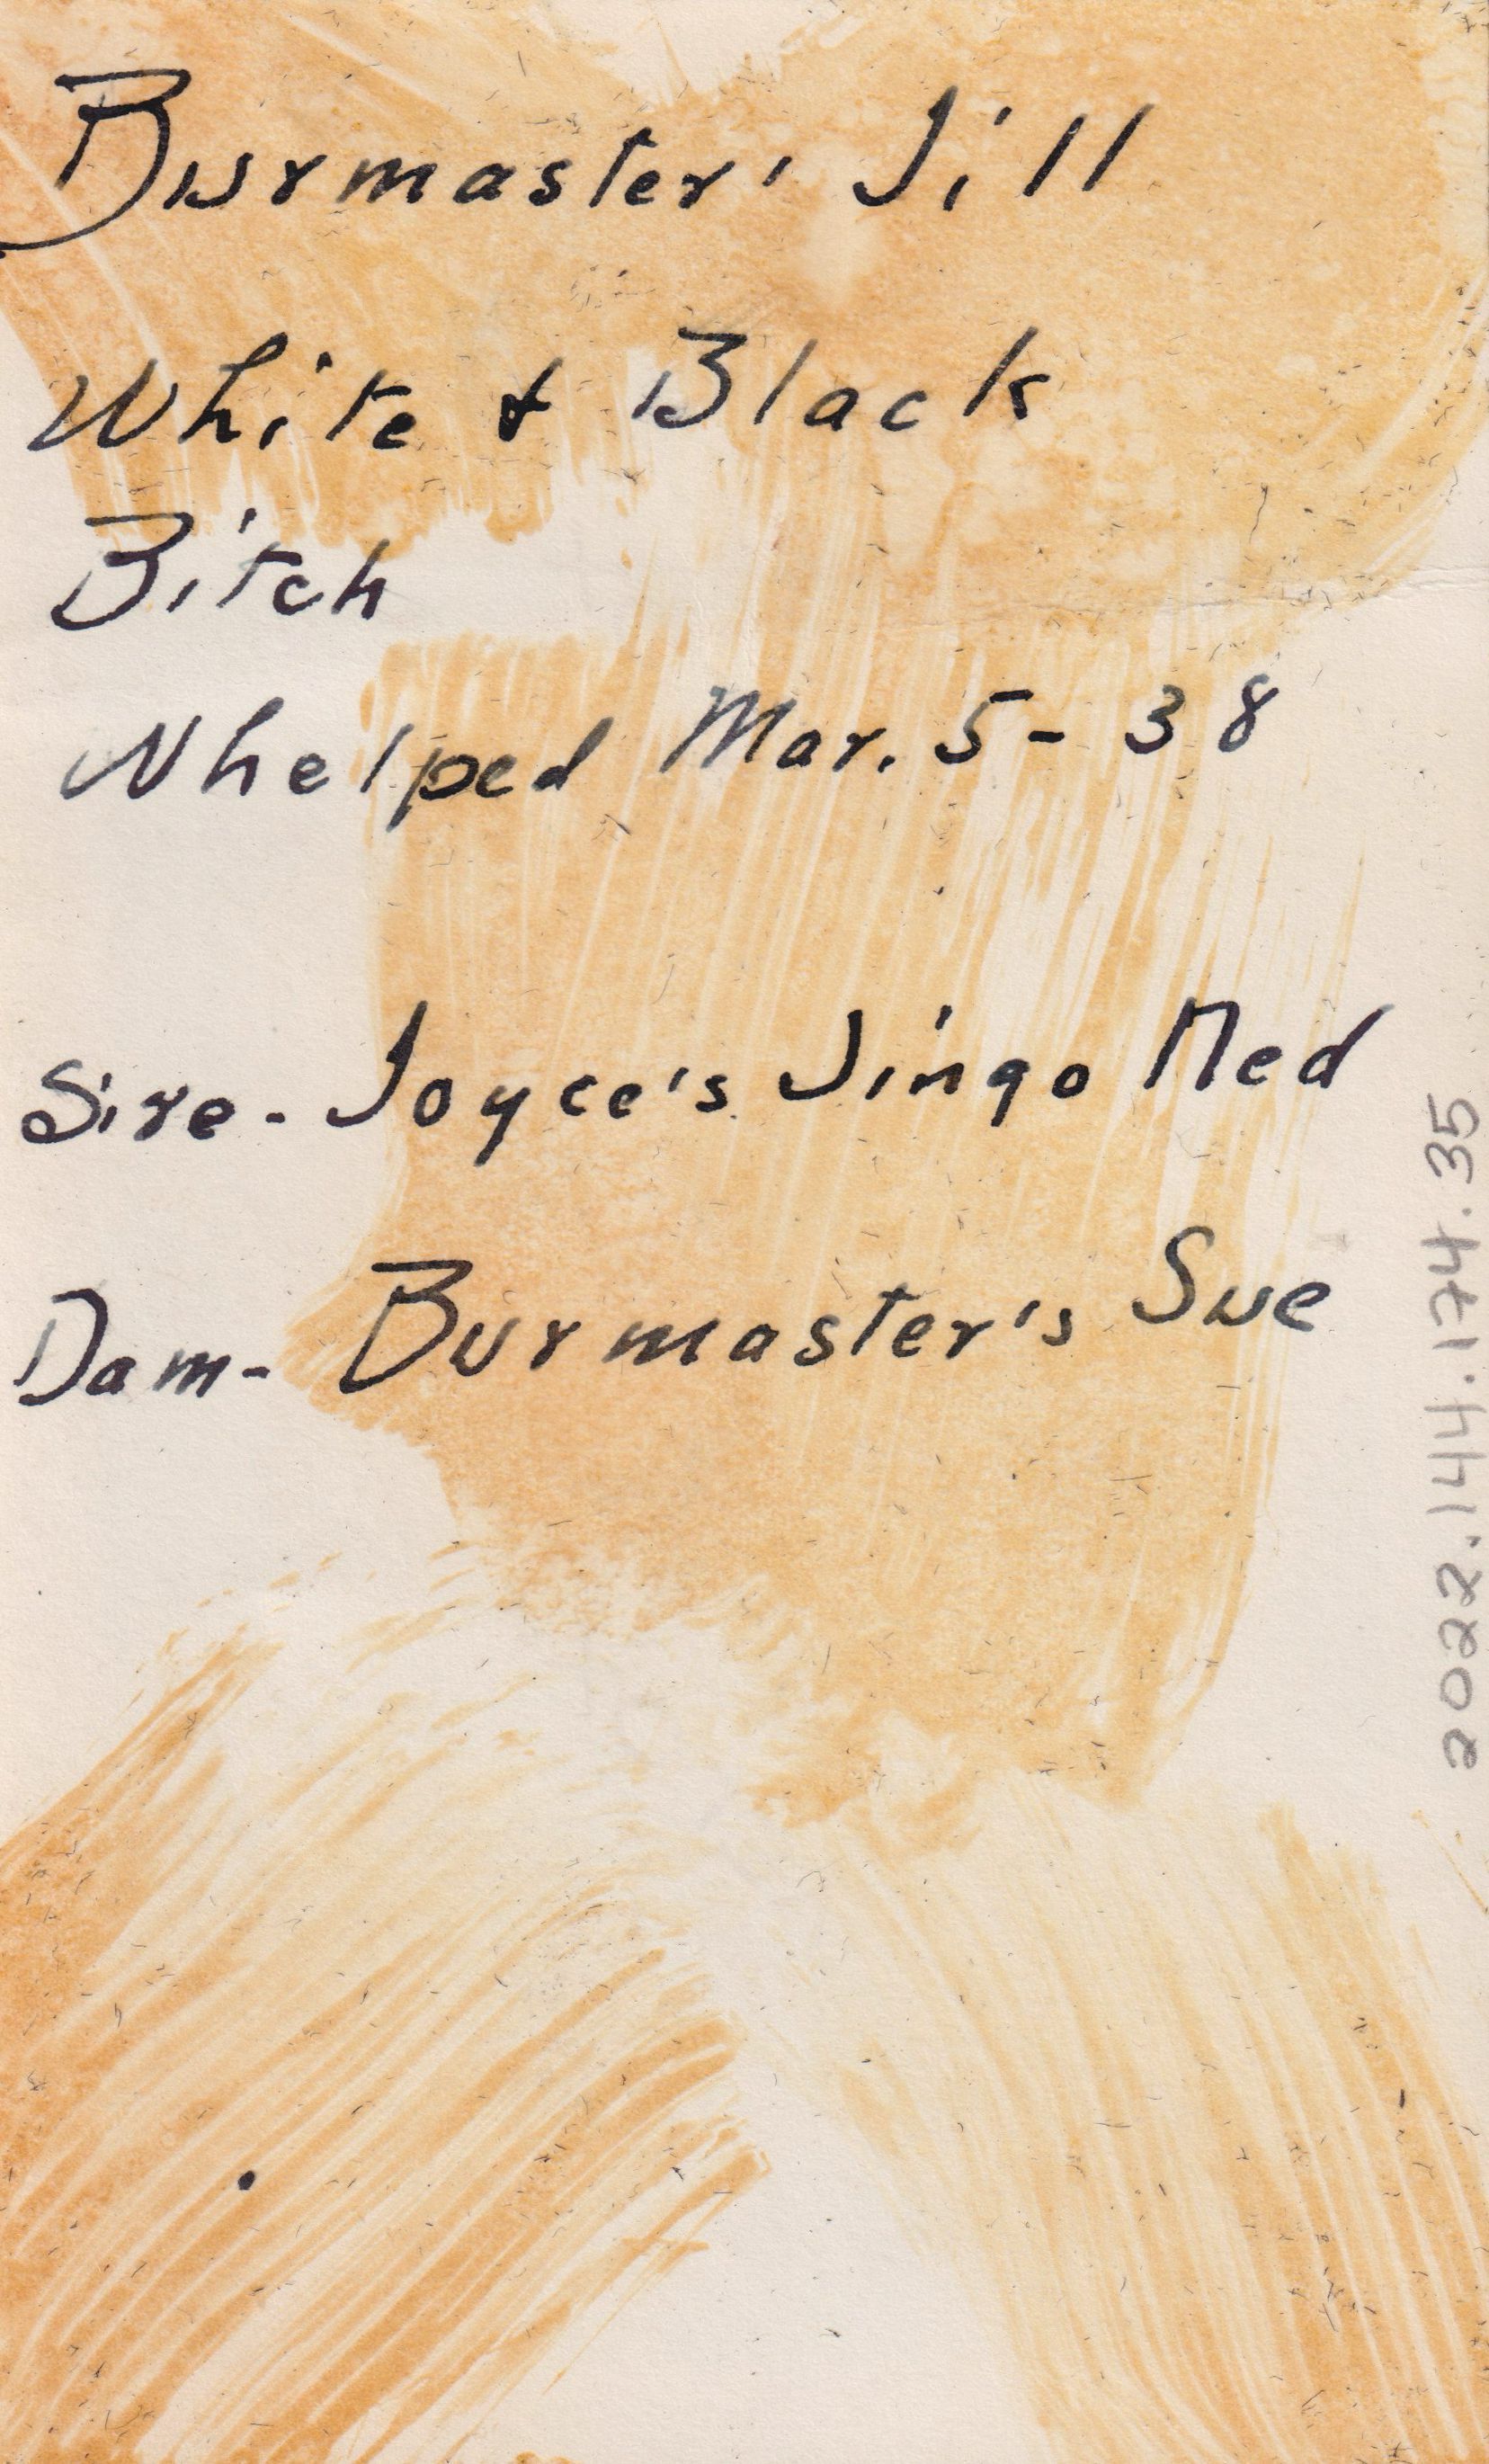 Burmaster' Jill
White & Black
Bitch
Whelped Mar. 5 - 38
Sire - Joyce's Jingo Ned
Dam - Burmaster's Sue
2022.144.174.35